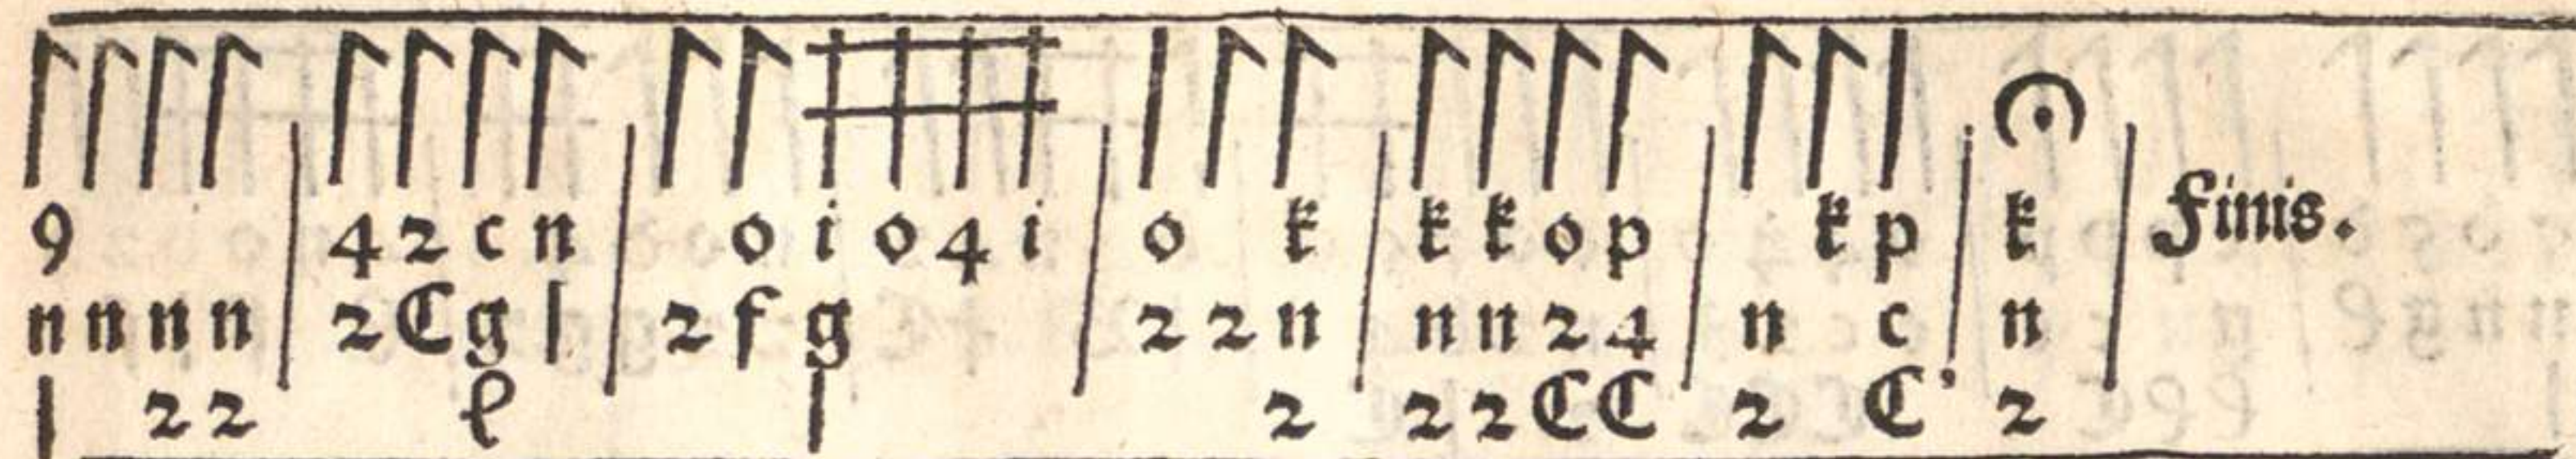 9 | 4 2 c n | o i o 4 i | o k | k k o p | k p | k | Finis.
n n n n | 2 C g l | 2 f g | 2 2 n | n n 2 4 | n c | n |
l 2 2 | e | l | 2 | 2 2 C C | 2 C' | 2